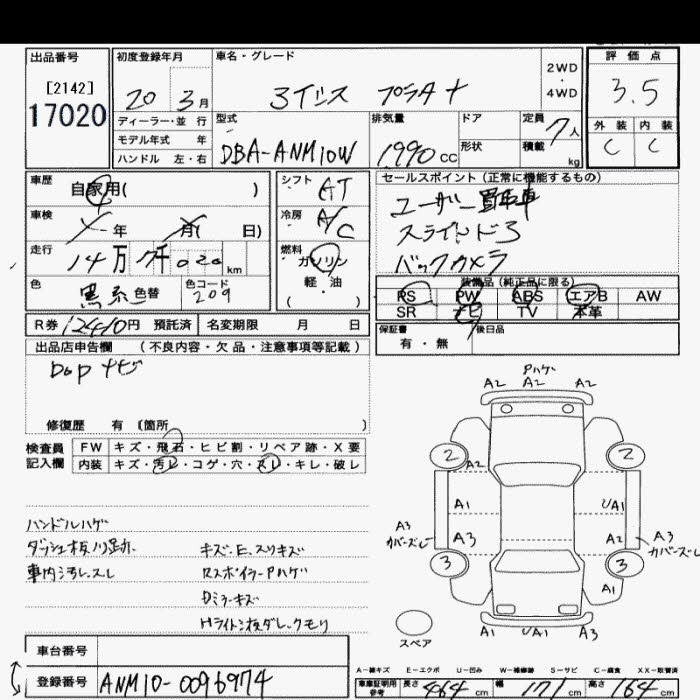 出品番号
[2142]
17020
初度登録年月
20 3月
車名・グレード
アイシス プラタナ
2WD
・
4WD
評価点
3.5
外装 内装
C C
ディーラー・並行
モデル年式 年
ハンドル 左・右
型式
DBA-ANM10W
排気量
1990cc
ドア
形状
定員
7人
積載
kg
車歴
自家用( )
車検
年 月( 日)
走行
14万7千020km
色
黒系 色替
色コード
209
シフト
AT
冷房
A/C
燃料
ガソリン
・
軽油
( )
セールスポイント(正常に機能するもの)
ユーザー買取車
スライドドア
バックカメラ
装備品(純正品に限る)
PS PW ABS エアB AW
SR ナビ TV 本革
保証書
有・無
後日品
R券 12410円 預託済 名変期限 月 日
出品店申告欄 (不良内容・欠品・注意事項等記載)
Dop ナビ
修復歴 有 〔箇所 〕
検査員
記入欄
FW キズ・飛石・ヒビ割・リペア跡・X要
内装 キズ・汚レ・コゲ・穴・スレ・キレ・破レ
ハンドルハゲ
ダッシュ板穴跡
車内汚レスレ
キズ、E、スリキズ
RスポイラーPハゲ
Dミラーキズ
Hライトン板ダレ、クモリ
Pハゲ
A2 A2 A2
2 2
A2
A1 UA1
A3
カバーズレ
A3 A2
A3
カバーズレ
3 3
A1
A1 UA1 A3
スペア
車台番号
登録番号
ANM10-0096974
A-線キズ E-エクボ U-凹み W-補修跡 S-サビ C-腐食 XX-取替済
車庫証明用
参考
長さ 464cm 幅 171cm 高さ 164cm